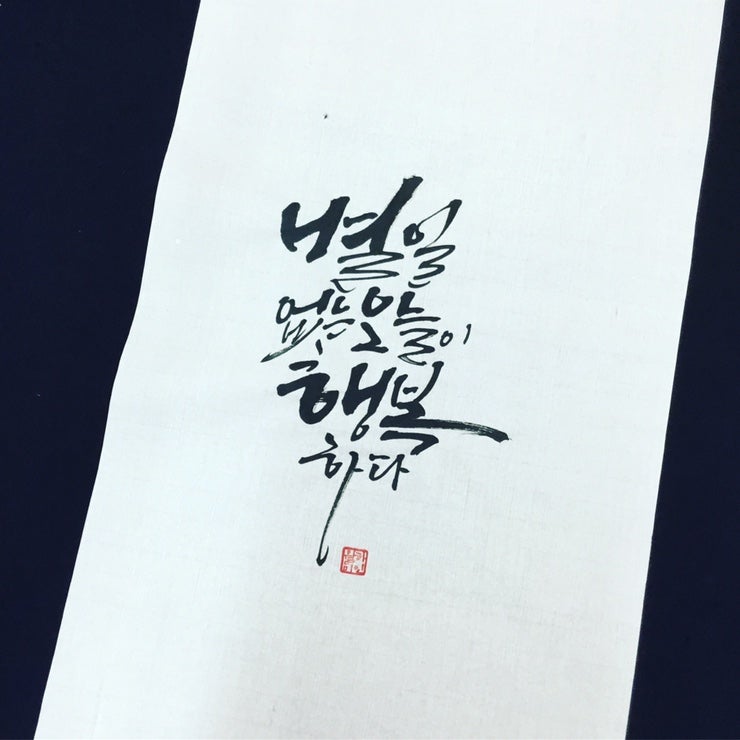 별일
없는 오늘이
행복
하다